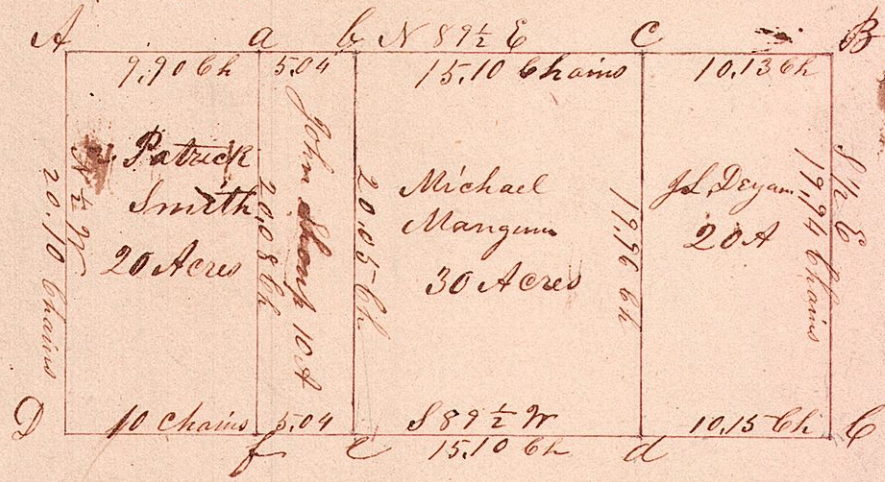 A a b N 89½ E C B
9,90 Ch 5,04 15,10 Chains 10,13 Ch
N ½ W
20.10 Chains
Patrick
Smith
20 Acres
20,08 Ch
John Shoup 10 A
20,05 Ch
Michael
Mangum
30 Acres
19,96 Ch
J L Deyam
20 A
S ½ E
19,94 Chains
D 10 Chains 5,04 S 89½ W 10,15 Ch C
f e 15,10 Ch d